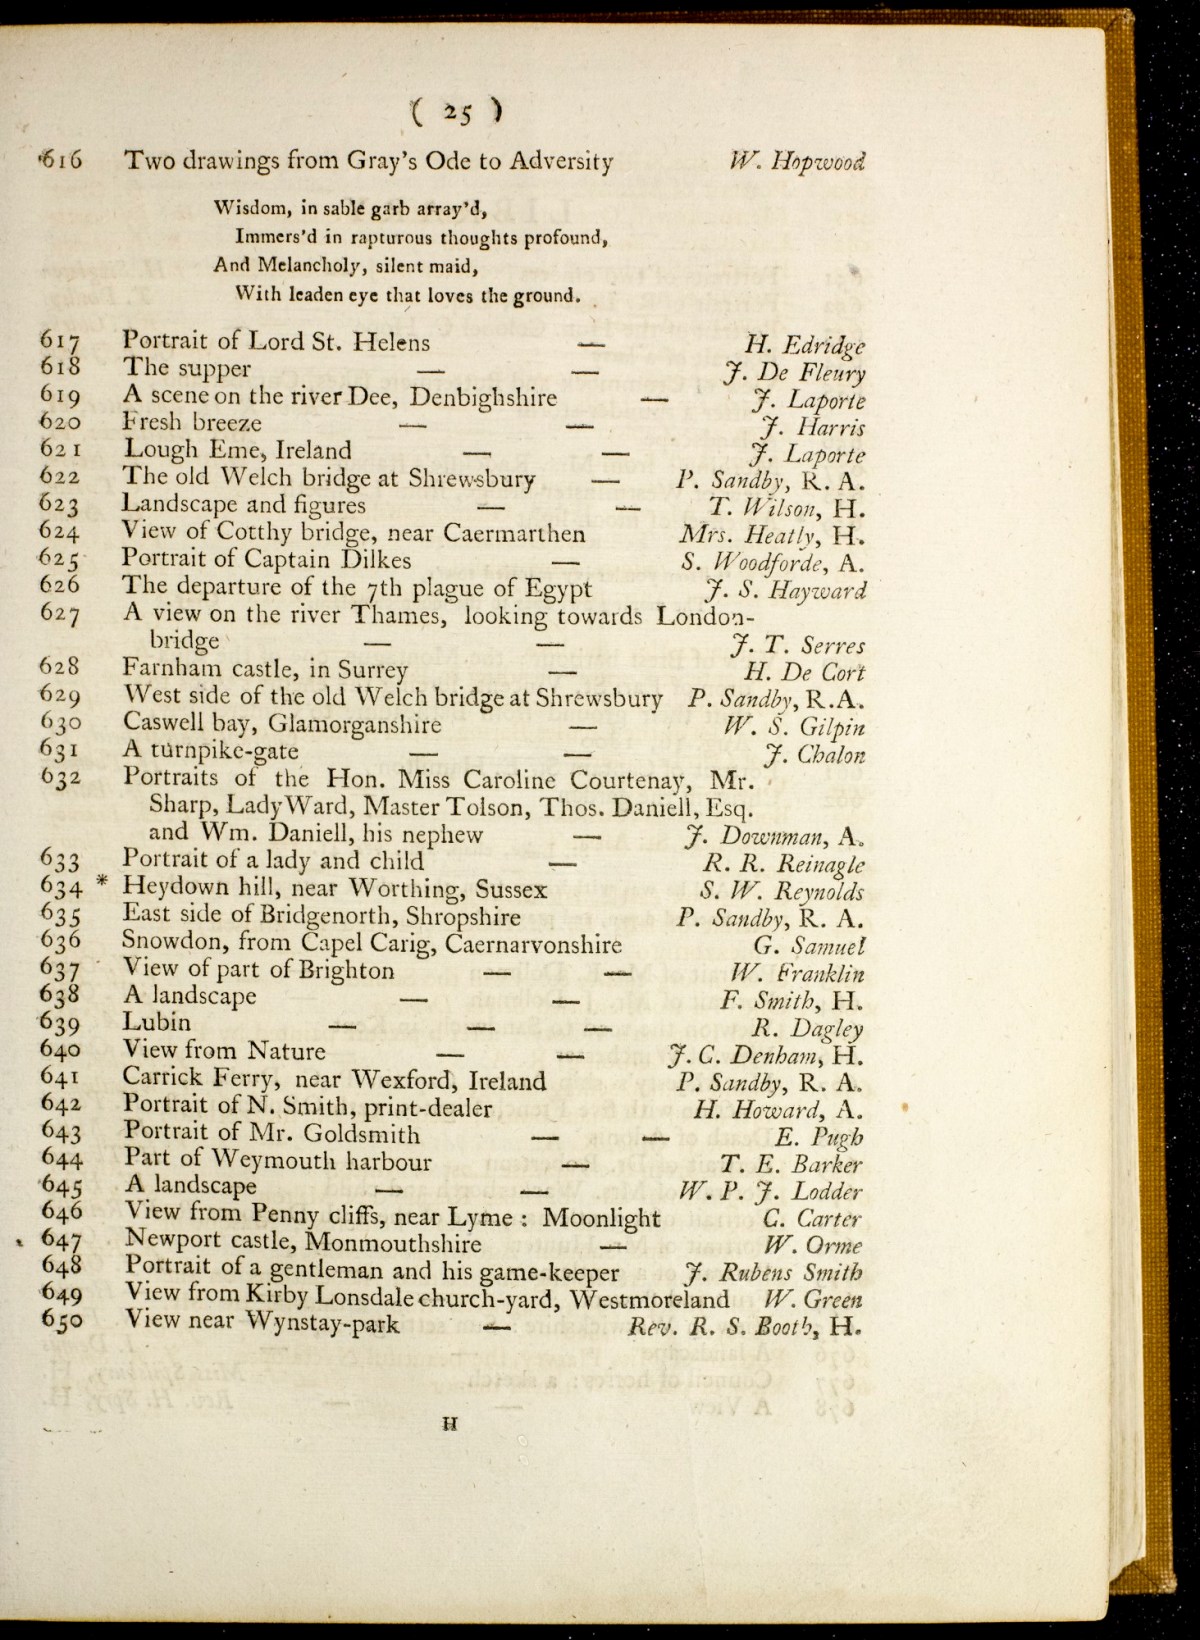 ( 25 )
616 Two drawings from Gray's Ode to Adversity W. Hopwood
Wisdom, in sable garb array'd,
Immers'd in rapturous thoughts profound,
And Melancholy, silent maid,
With leaden eye that loves the ground.
617 Portrait of Lord St. Helens — H. Edridge
618 The supper — — J. De Fleury
619 A scene on the river Dee, Denbighshire — J. Laporte
620 Fresh breeze — — J. Harris
621 Lough Eme, Ireland — — J. Laporte
622 The old Welch bridge at Shrewsbury — P. Sandby, R. A.
623 Landscape and figures — — T. Wilson, H.
624 View of Cotthy bridge, near Caermarthen Mrs. Heatly, H.
625 Portrait of Captain Dilkes — S. Woodforde, A.
626 The departure of the 7th plague of Egypt J. S. Hayward
627 A view on the river Thames, looking towards London-
bridge — — J. T. Serres
628 Farnham castle, in Surrey — H. De Cort
629 West side of the old Welch bridge at Shrewsbury P. Sandby, R.A.
630 Caswell bay, Glamorganshire — W. S. Gilpin
631 A turnpike-gate — — J. Chalon
632 Portraits of the Hon. Miss Caroline Courtenay, Mr.
Sharp, Lady Ward, Master Tolson, Thos. Daniell, Esq.
and Wm. Daniell, his nephew — J. Downman, A.
633 Portrait of a lady and child — R. R. Reinagle
634 * Heydown hill, near Worthing, Sussex S. W. Reynolds
635 East side of Bridgenorth, Shropshire P. Sandby, R. A.
636 Snowdon, from Capel Carig, Caernarvonshire G. Samuel
637 View of part of Brighton — — W. Franklin
638 A landscape — — F. Smith, H.
639 Lubin — — — R. Dagley
640 View from Nature — — J. C. Denham, H.
641 Carrick Ferry, near Wexford, Ireland P. Sandby, R. A.
642 Portrait of N. Smith, print-dealer H. Howard, A.
643 Portrait of Mr. Goldsmith — — E. Pugh
644 Part of Weymouth harbour — T. E. Barker
645 A landscape — — W. P. J. Lodder
646 View from Penny cliffs, near Lyme : Moonlight C. Carter
647 Newport castle, Monmouthshire — W. Orme
648 Portrait of a gentleman and his game-keeper J. Rubens Smith
649 View from Kirby Lonsdale church-yard, Westmoreland W. Green
650 View near Wynstay-park — Rev. R. S. Booth, H.
H